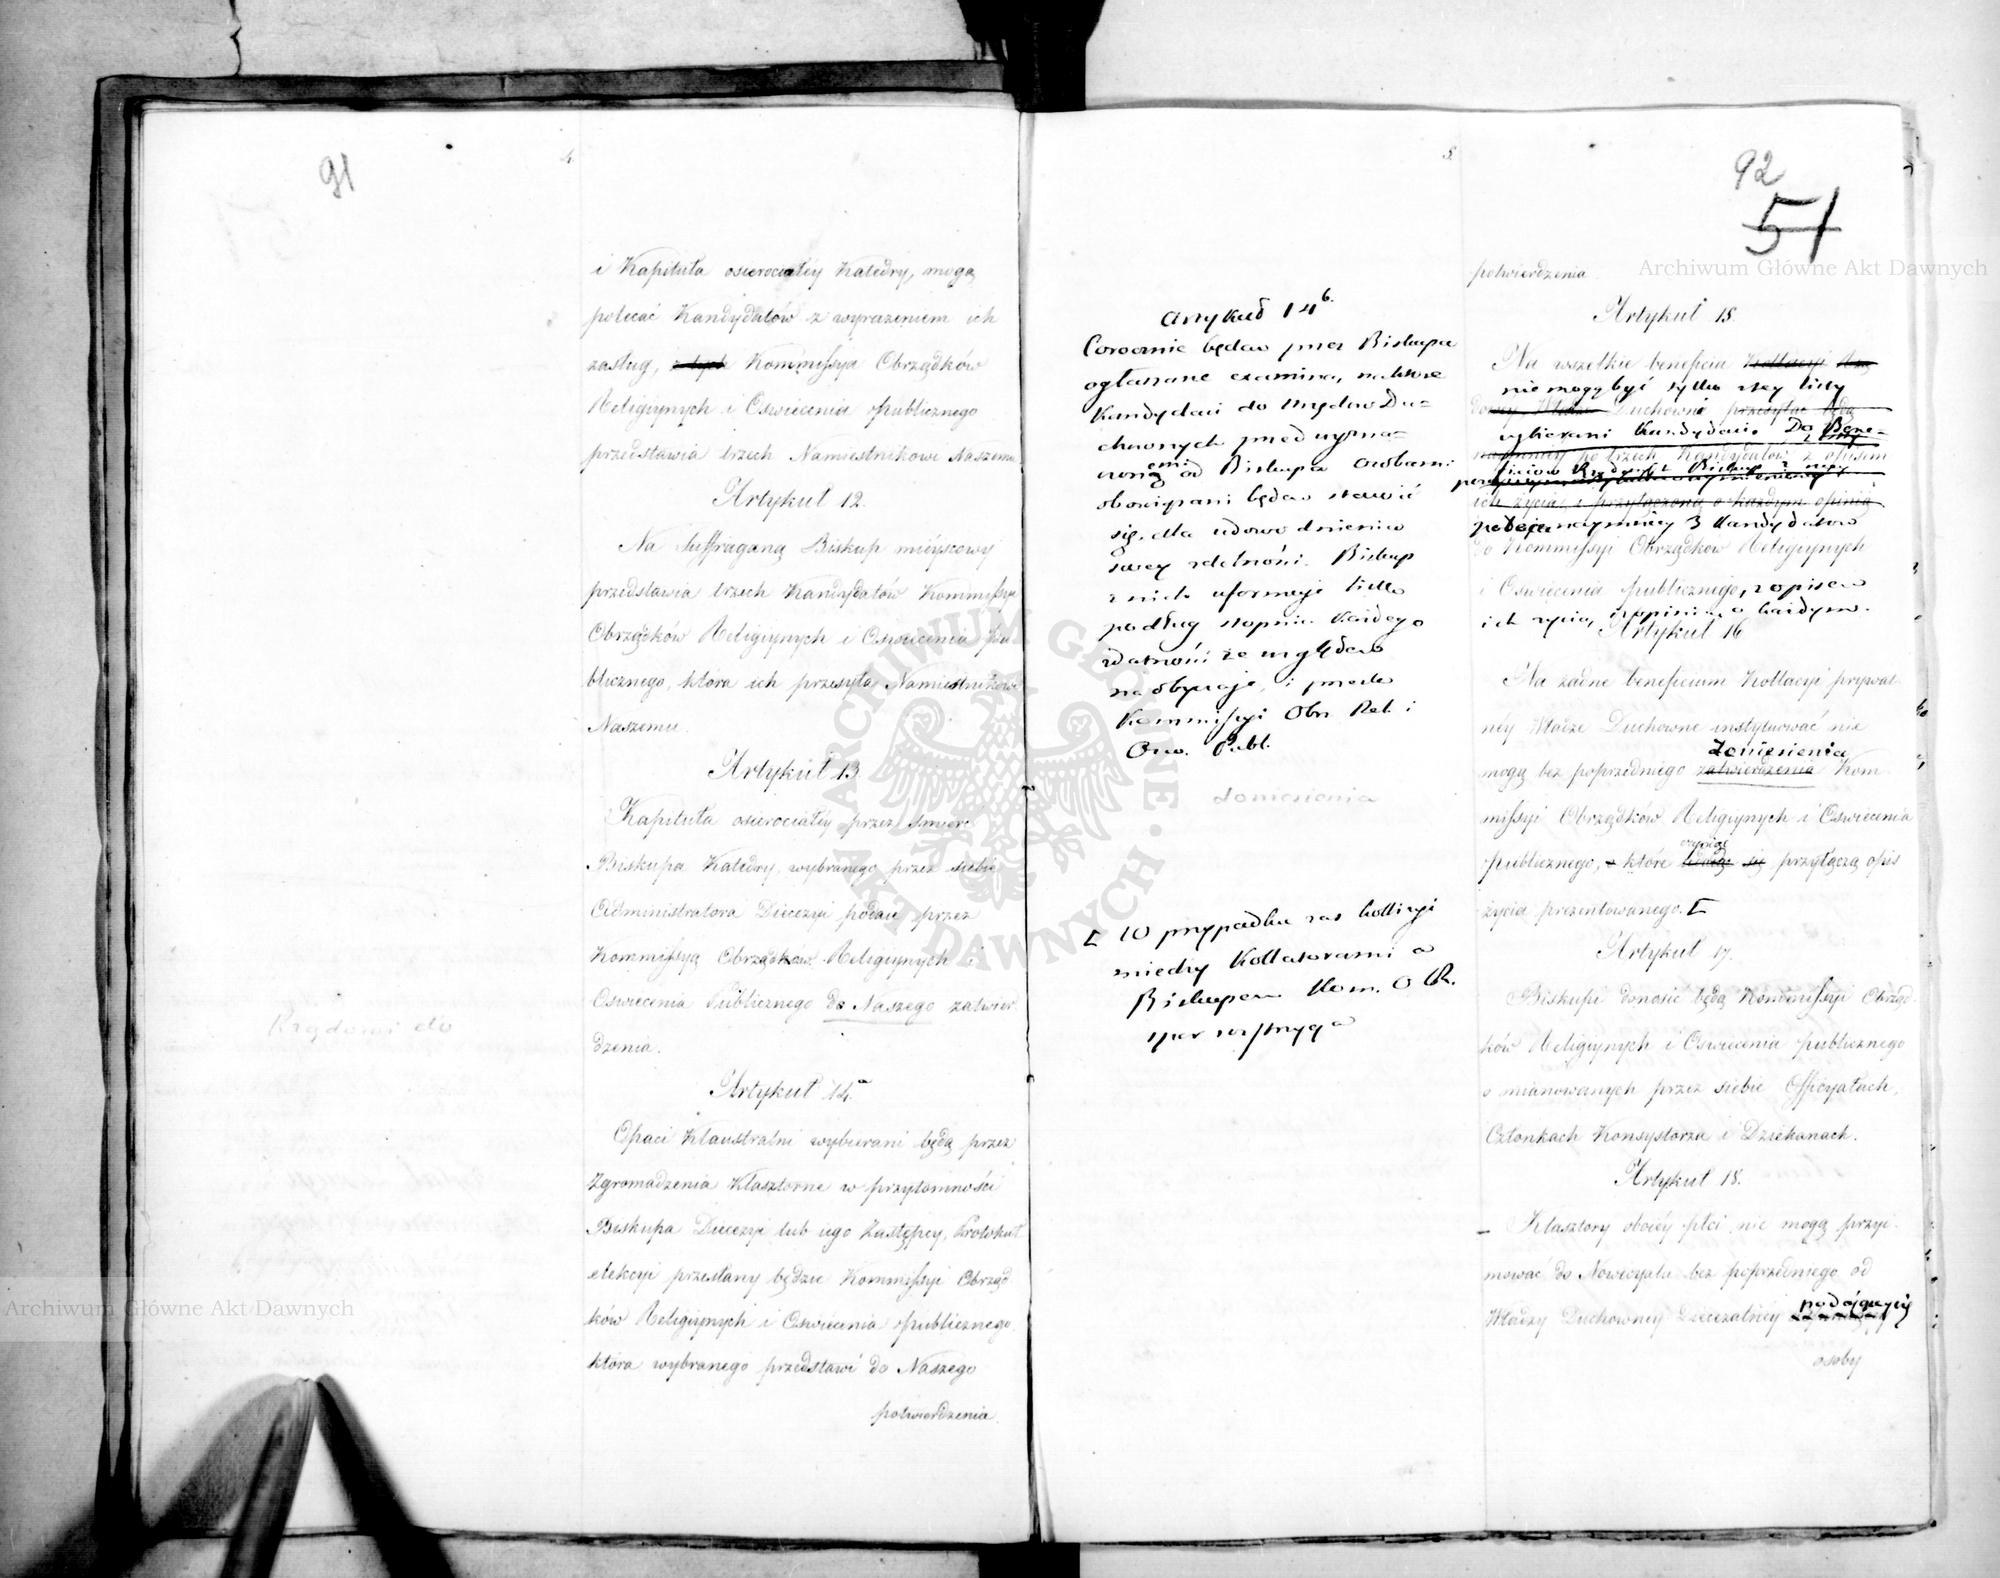 91
4.
i Kapituła osierociałéy Katedry, mogą
polecać Kandydatów z wyrażeniem ich
zasług, z tych Kommissya Obrządków
Religiynych i Oświecenia publicznego
przedstawia trzech Namiestnikowi Naszemu.
Artykuł 12.
Na Suffraganą Biskup mieyscowy
przedstawia trzech Kandydatów Kommissyi
Obrządków Religiynych i Oświecenia Pu-
blicznego, która ich przesyła Namiestnikowi
Naszemu.
Artykuł 13.
Kapituła osierociałéy przez śmierć
Biskupa Katedry, wybranego przez siebie
Administratora Diecezyi podaie przez
Kommissyą Obrządków Religiynych i
Oświecenia Publicznego do Naszego zatwier-
dzenia.
Rządowi do
Artykuł 14.a
Opaci Klaustralni wybierani będą przez
Zgromadzenia Klasztorne w przytomności
Biskupa Diecezyi lub iego Zastępcy, Protokuł
elekcyi przesłany będzie Kommissyi Obrząd-
ków Religiynych i Oświecenia publicznego,
która wybranego przedstawi do Naszego
potwierdzenia.
5.
92
51
Artykuł 14b.
Corocznie będą przez Biskupa
ogłaszane examina, na które
Kandydaci do Urzędów Du-
chownych przed wyzna-
czonemi od Biskupa Osobami
obowiązani będą stawić
się, dla udowodnienia
swey zdatności. Biskup
z nich uformuje listę
podług stopnia każdego
zdatności ze względów
na obyczaje, i prześle
Kommissyi Obrz. Rel. i
Ośw. Publ.
doniesienia
[ W przypadku zas kollizyi
miedzy Kollatorami a
Biskupem Kom. O. R.
spor rozstrzyga
potwierdzenia.
Artykuł 15.
Na wszelkie beneficia Kollacyi Rzą-
nie mogą być tylko z tey listy
dowey Władze Duchowne przesyłać będą
wybierani Kandydaci. Do Bene-
naymniey po trzech Kandydatów z opisem
ficiów Rządowych Biskup z niey
ich życia i przyłączoną o każdym opinią
podaje naymniey 3 Kandydatów
do Kommissyi Obrządków Religiynych
i Oświecenia publicznego, z opisem
ich życia, i opinią o każdym.
Artykuł 16
Na żadne beneficium Kollacyi prywat-
néy Władze Duchowne instytuować nie
doniesienia
mogą bez poprzedniego zatwierdzenia Kom-
missyi Obrządków Religiynych i Oświecenia
publicznego, z które się przyłączą opis
życia prezentowanego. [
Artykuł 17.
Biskupi donosić będą Kommissyi Obrząd-
ków Religiynych i Oświecenia publicznego
o mianowanych przez siebie Officyałach,
Członkach Konsystorza i Dziekanach.
Artykuł 18.
– Klasztory oboiéy płci nie mogą przyi-
mować do Nowicyatu bez poprzedniego od
Władzy Duchowney Diecezalnéy
osoby
Archiwum Główne Akt Dawnych
Archiwum Główne Akt Dawnych
ARCHIWUM GŁÓWNE • AKT DAWNYCH •